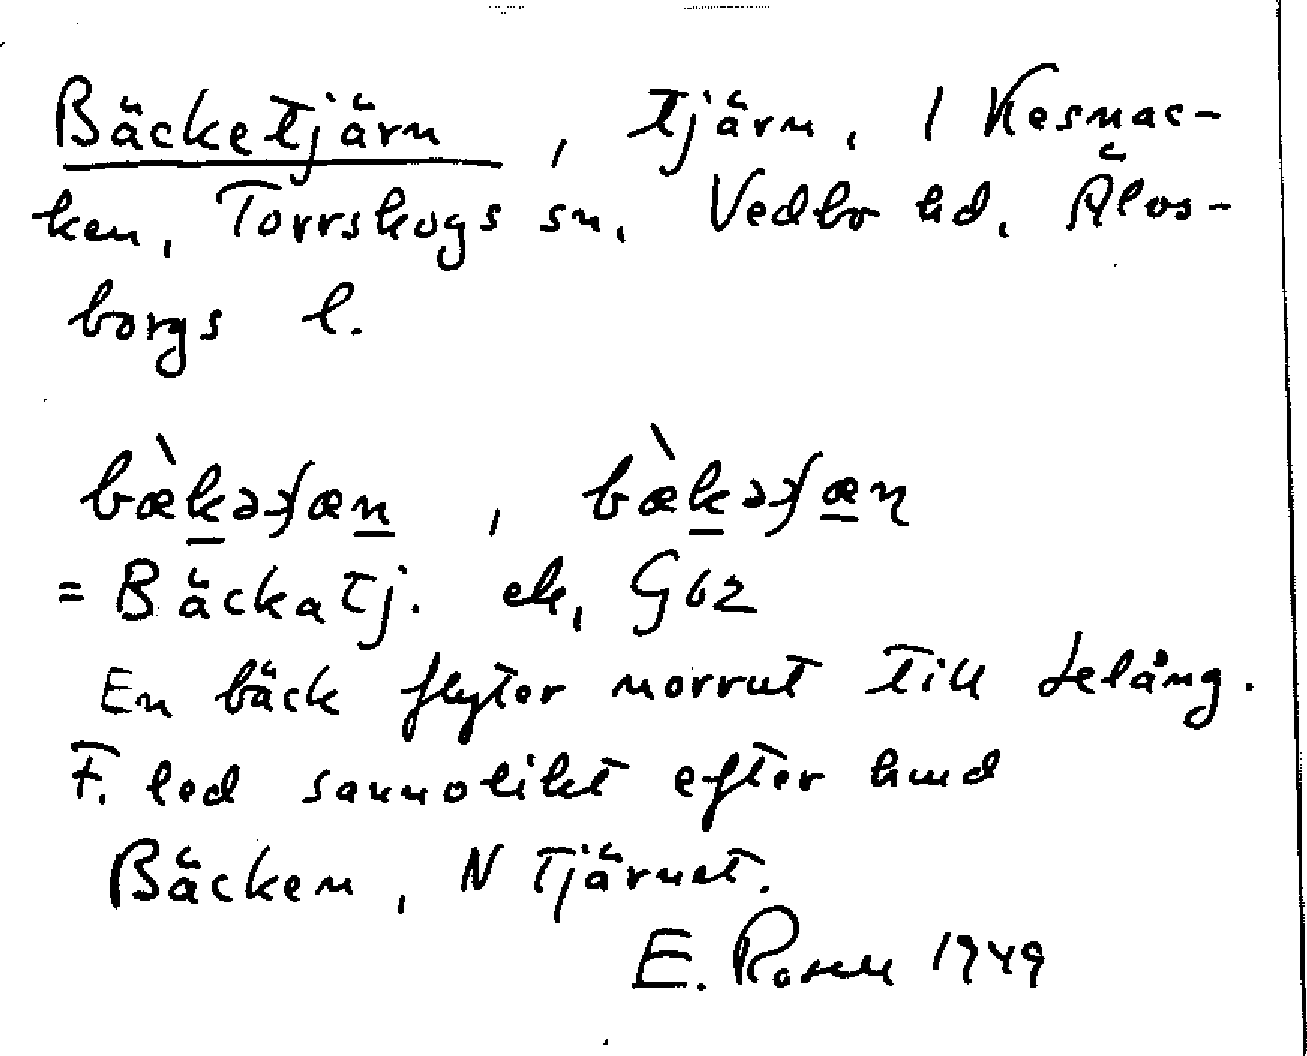 Bäcketjärn, tjärn, 1 Kesnac-
ken, Torrskogs sn, Vedbo hd, Älvs-
borgs l.
= Bäckatj. ek, G62
En bäck flyter norrut till Lelång.
F. led sannolikt efter hmd
Bäcken, N Tjärnet.
E. Rosell 1949